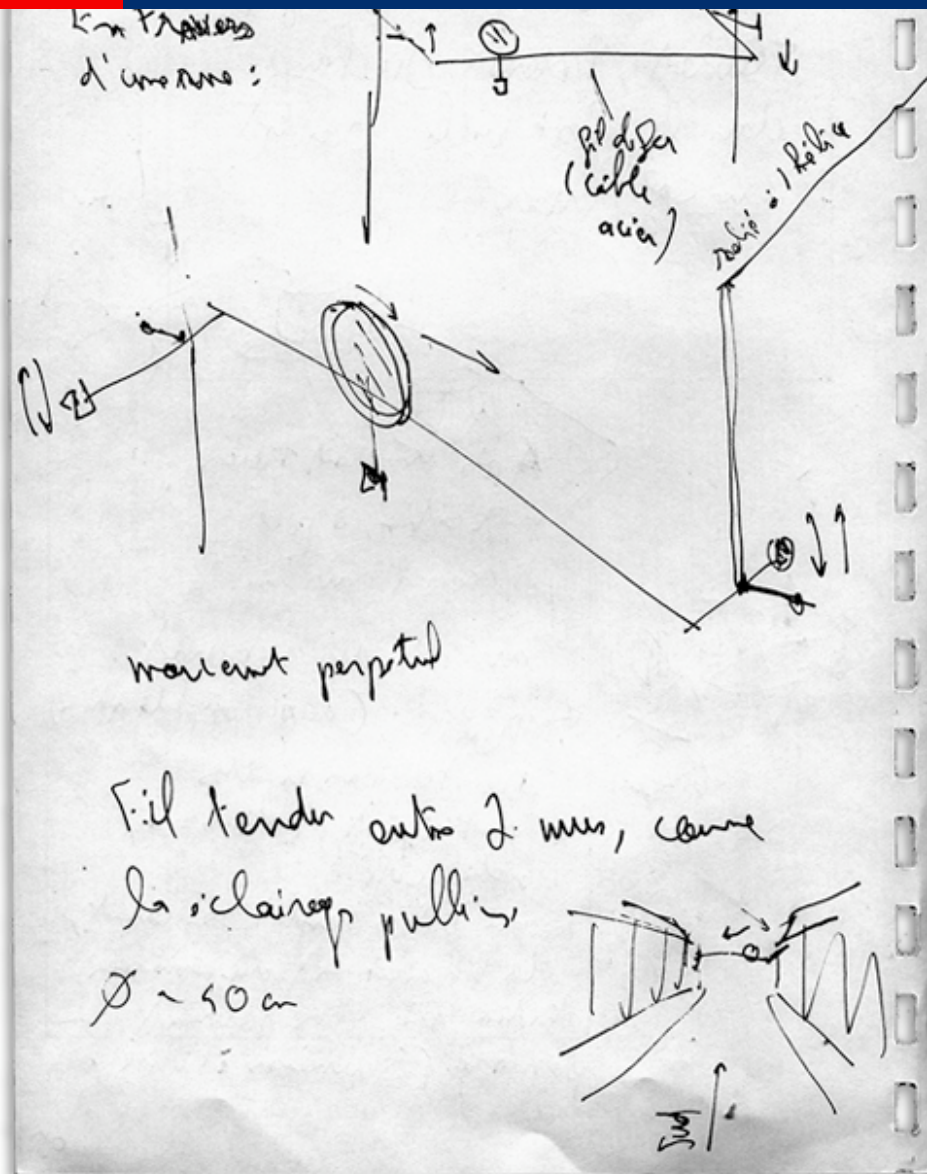 En travers
d'une rue :
fil de fer
( câble
acier )
relié à 1 hélice
mouvement perpétuel
Fil tendu entre 2 murs, comme
les éclairages publics
Ø ~ 40 cm